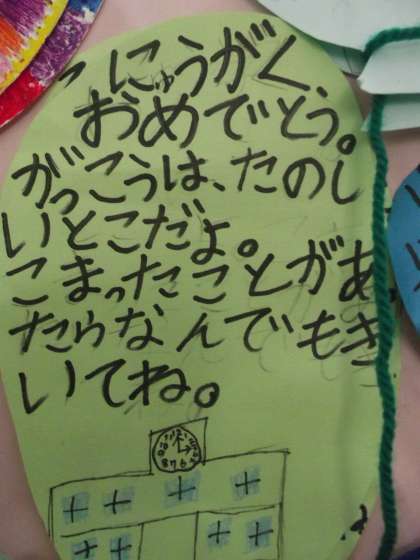 ごにゅうがく、
おめでとう。
がっこうは、たのし
いとこだよ。
こまったことがあ
たらなんでもき
いてね。